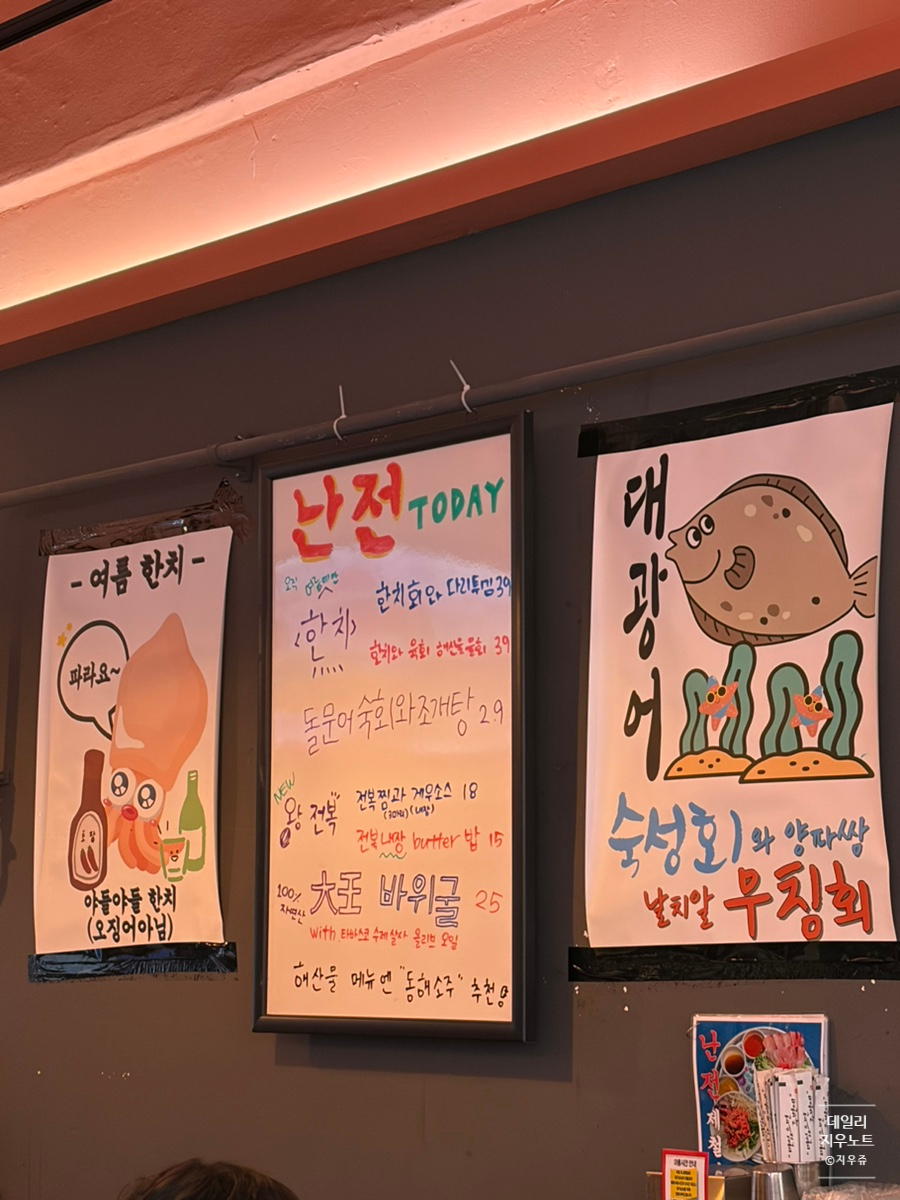 - 여름 한치 -
파라요~
초장
야들야들 한치
(오징어아님)
난전 TODAY
오직 여름에만
<한치>
한치회와 다리튀김 39
한치와 육회 해산물물회 39
돌문어숙회와조개탕 29
NEW
왕 전복
전복찜과 게우소스 18
(3마리) (내장)
전복내장 butter 밥 15
100%
자연산
大王 바위굴 25
with 타바스코 수제살사 올리브 오일
해산물 메뉴엔 "동해소주" 추천
대광어
숙성회와 양파쌈
날치알 무침회
난전
제철
데일리
지우노트
©지우쥬